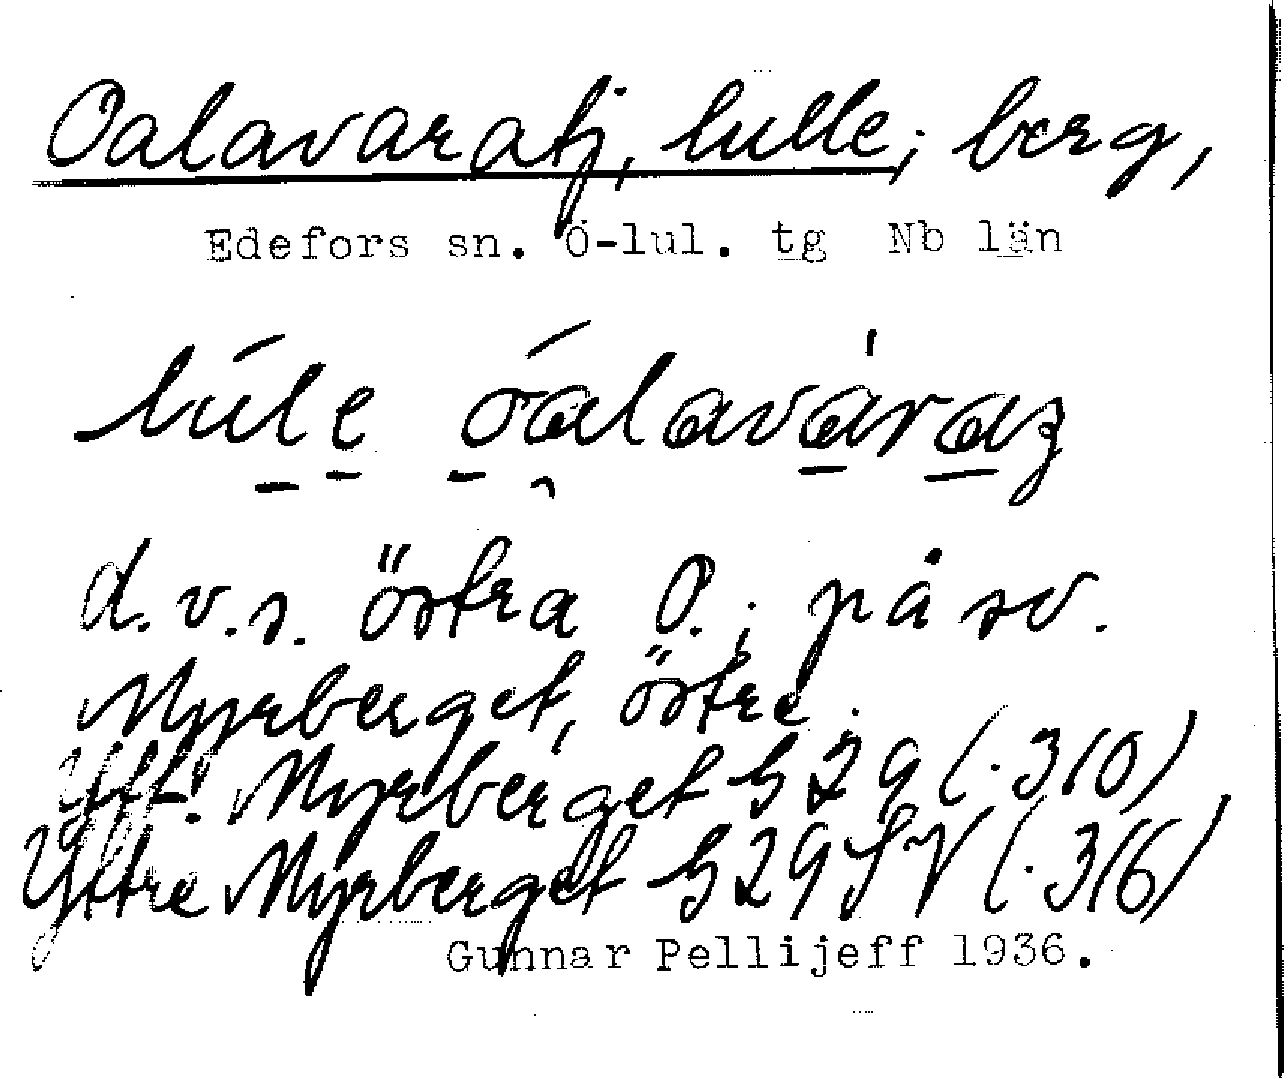 Oalavaratj, lulle; berg,
Edefors sn. Ö-lul. tg Nb län
lúle óalavȧraʒ
d.v.s. östra O.; på sv.
Myrberget, östre.
Myrberget h 29 (.310)
Yttre Myrberget h 29 SV (.316)
Gunnar Pellijeff 1936.